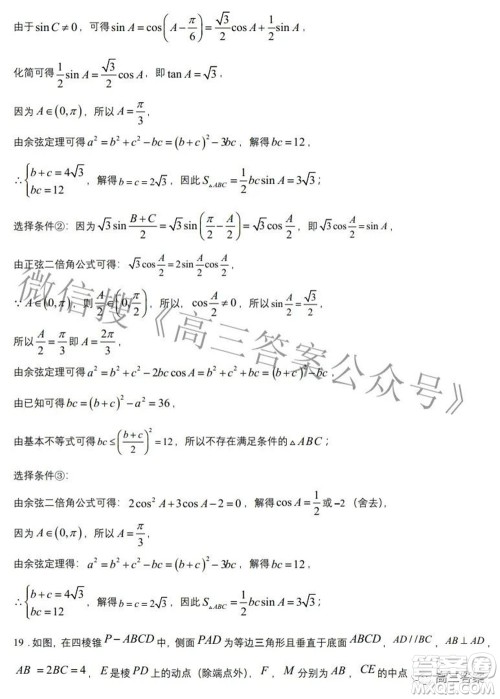 由于 sin C ≠ 0，可得 sin A = cos(A − π/6) = √3/2 cos A + 1/2 sin A，
化简可得 1/2 sin A = √3/2 cos A，即 tan A = √3，
因为 A ∈ (0, π)，所以 A = π/3，
由余弦定理可得 a² = b² + c² − bc = (b + c)² − 3bc，解得 bc = 12，
∴ {b + c = 4√3, bc = 12，解得 b = c = 2√3，因此 S△ABC = 1/2 bc sin A = 3√3；
选择条件②：因为 √3 sin (B + C)/2 = √3 sin(π/2 − A/2) = √3 cos A/2，即 √3 cos A/2 = sin A，
由正弦二倍角公式可得：√3 cos A/2 = 2 sin A/2 cos A/2，
∵ A ∈ (0, π)，则 A/2 ∈ (0, π/2)，所以，cos A/2 ≠ 0，所以 sin A/2 = √3/2，
所以 A/2 = π/3 即 A = 2π/3，
由余弦定理可得 a² = b² + c² − 2bc cos A = b² + c² + bc = (b + c)² − bc
由已知可得 bc = (b + c)² − a² = 36，
由基本不等式可得 bc ≤ ((b + c)/2)² = 12，所以不存在满足条件的 △ABC；
选择条件③：
由余弦二倍角公式可得：2cos² A + 3cos A − 2 = 0，解得 cos A = 1/2 或 −2（舍去），
因为 A ∈ (0, π)，所以 A = π/3，
由余弦定理得：a² = b² + c² − bc = (b + c)² − 3bc，解得 bc = 12，
∴ {b + c = 4√3, bc = 12，解得 b = c = 2√3，因此 S△ABC = 1/2 bc sin A = 3√3；
19．如图，在四棱锥 P − ABCD 中，侧面 PAD 为等边三角形且垂直于底面 ABCD，AD // BC，AB ⊥ AD，
AB = 2BC = 4，E 是棱 PD 上的动点（除端点外），F，M 分别为 AB，CE 的中点
微信搜《高三答案公众号》
高三答案